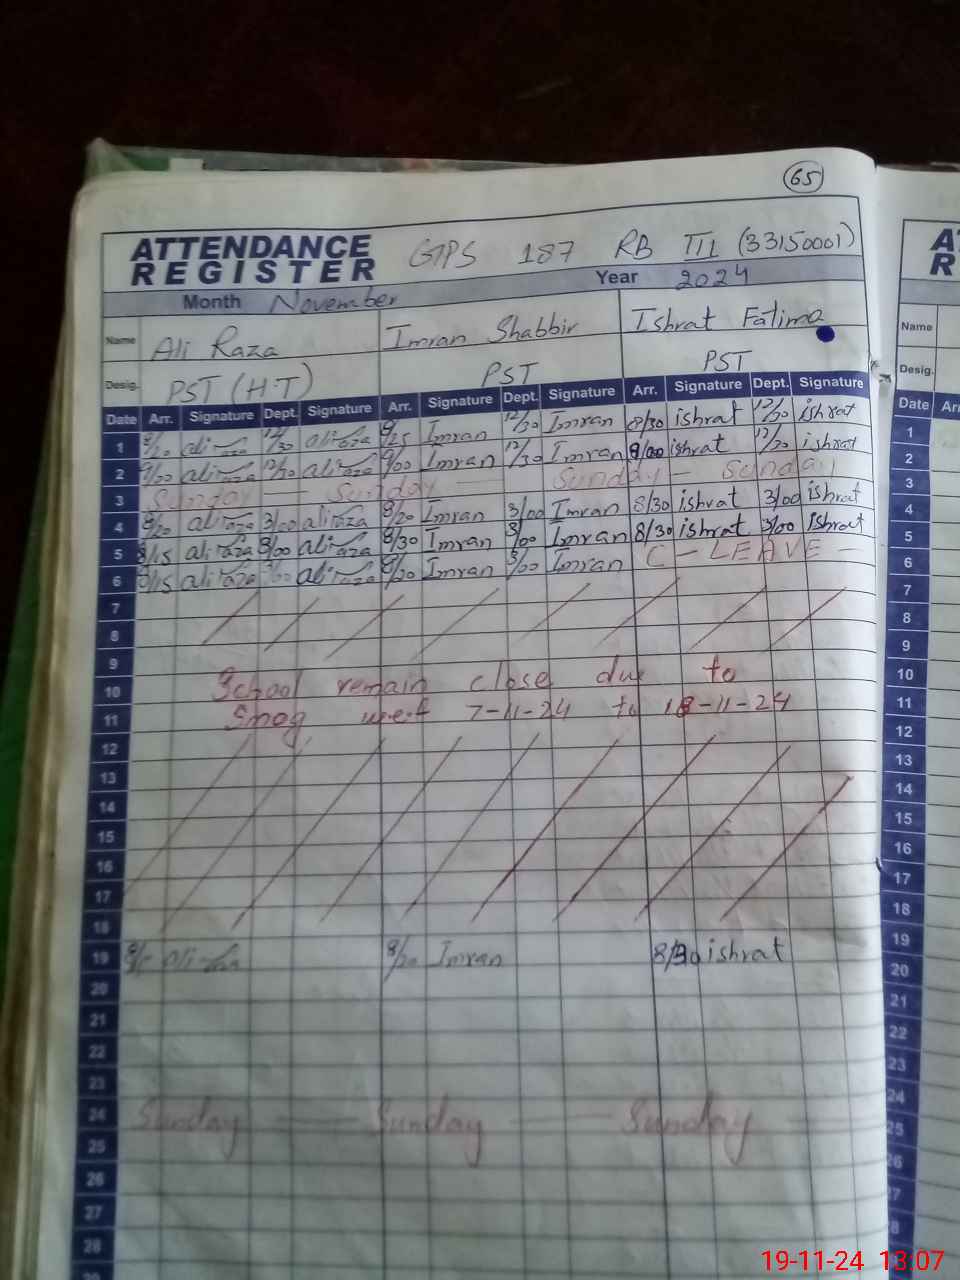 65
ATTENDANCE REGISTER GPS 187 RB III (33150001)
Month November Year 2024
Name Ali Raza Imran Shabbir Ishrat Fatima
Desig. PST (H.T) PST PST
Date Arr. Signature Dept. Signature Arr. Signature Dept. Signature Arr. Signature Dept. Signature
1 8/20 ali raza 12/30 ali raza 8/25 Imran 12/30 Imran 8/30 ishrat 12/30 ishrat
2 9/00 ali raza 12/30 ali raza 9/00 Imran 12/30 Imran 9/00 ishrat 12/30 ishrat
3 Sunday — Sunday — Sunday — Sunday
4 8/20 ali raza 3/00 ali raza 8/20 Imran 3/00 Imran 8/30 ishrat 3/00 ishrat
5 8/15 ali raza 3/00 ali raza 8/30 Imran 3/00 Imran 8/30 ishrat 3/00 ishrat
6 8/15 ali raza ali raza 8/20 Imran 3/00 Imran C — LEAVE —
7
8
9
10 School remain close due to
11 Smog w.e.f 7-11-24 to 18-11-24
12
13
14
15
16
17
18
19 ali raza 8/20 Imran 8/30 ishrat
20
21
22
23
24 Sunday — Sunday — Sunday —
25
26
27
28
A
R
Name
Desig.
Date Arr
1
2
3
4
5
6
7
8
9
10
11
12
13
14
15
16
17
18
19
20
21
22
23
24
25
26
27
28
19-11-24 13:07